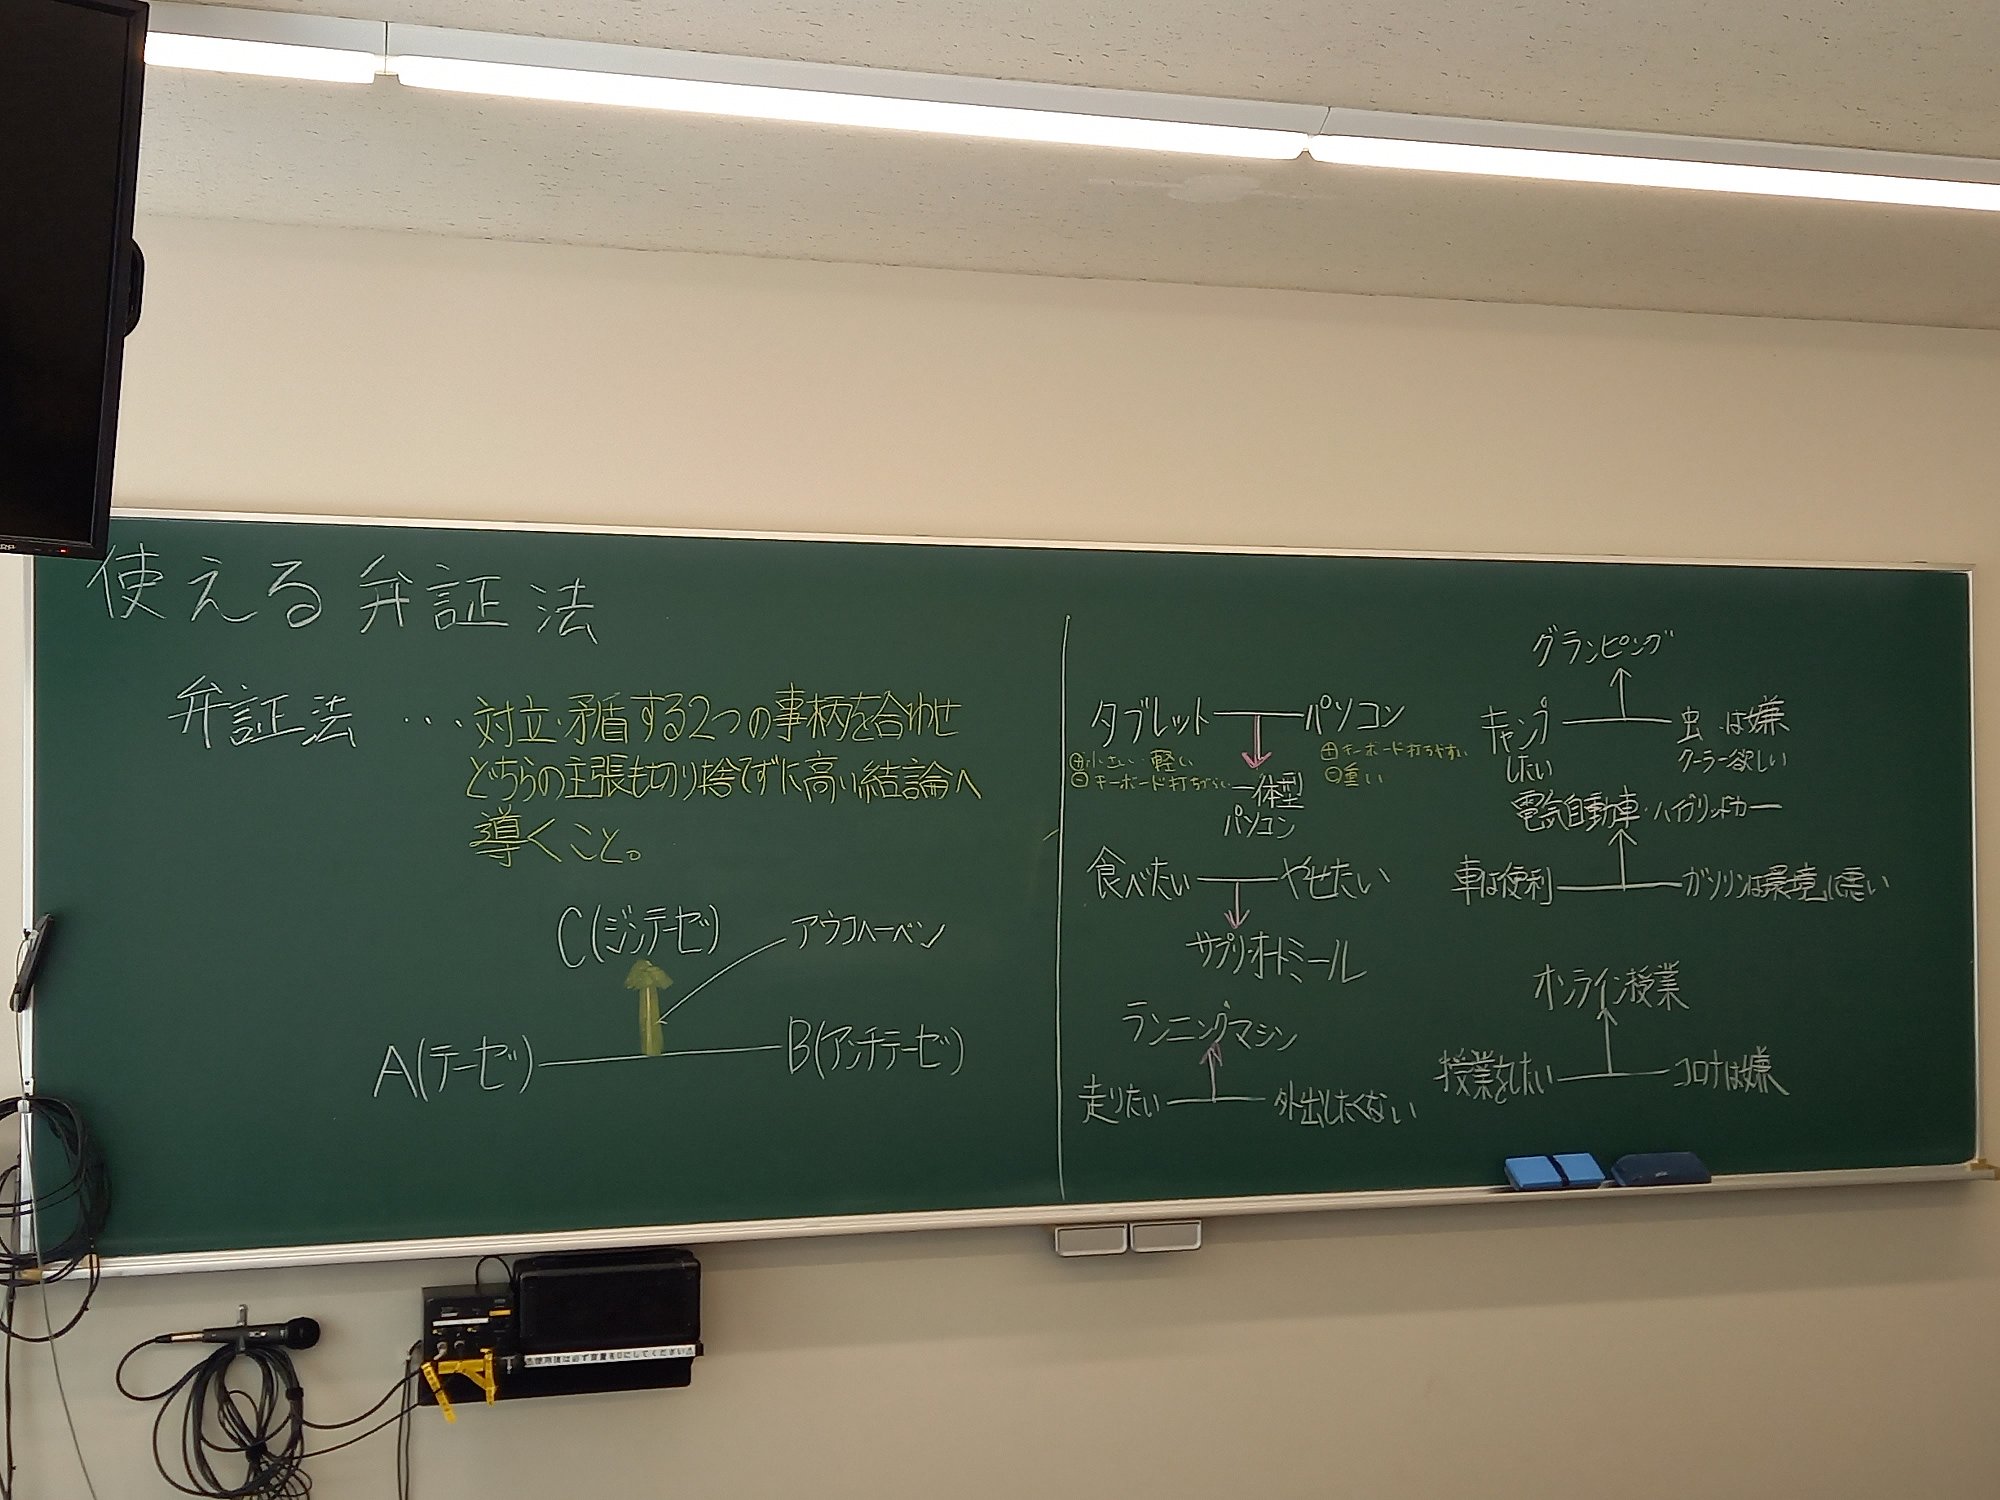 使える弁証法
弁証法 ・・・対立・矛盾する2つの事柄を合わせ
どちらの主張も切り捨てずに高い結論へ
導くこと。
C(ジンテーゼ)
アウフヘーベン
A(テーゼ)
B(アンチテーゼ)
タブレット
パソコン
⊕小さい・軽い
⊖キーボード打ちづらい
⊕キーボード打ちやすい
⊖重い
一体型
パソコン
食べたい
やせたい
サプリ・オートミール
ランニングマシン
走りたい
外出したくない
グランピング
キャンプ
したい
虫は嫌
クーラー欲しい
電気自動車・ハイブリッドカー
車は便利
ガソリンは環境に悪い
オンライン授業
授業をしたい
コロナは嫌
⚠使用後は必ず音量を0にしてください⚠